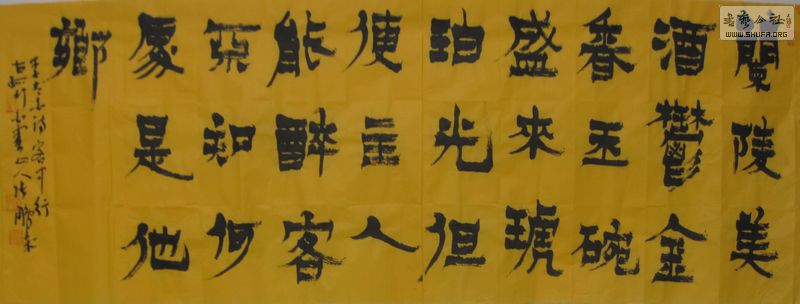 蘭陵美
酒鬱金
香玉碗
盛來琥
珀光但
使主人
能醉客
不知何
處是他
鄉
李太白詩客中行
書藝公社
WWW.SHUFA.ORG